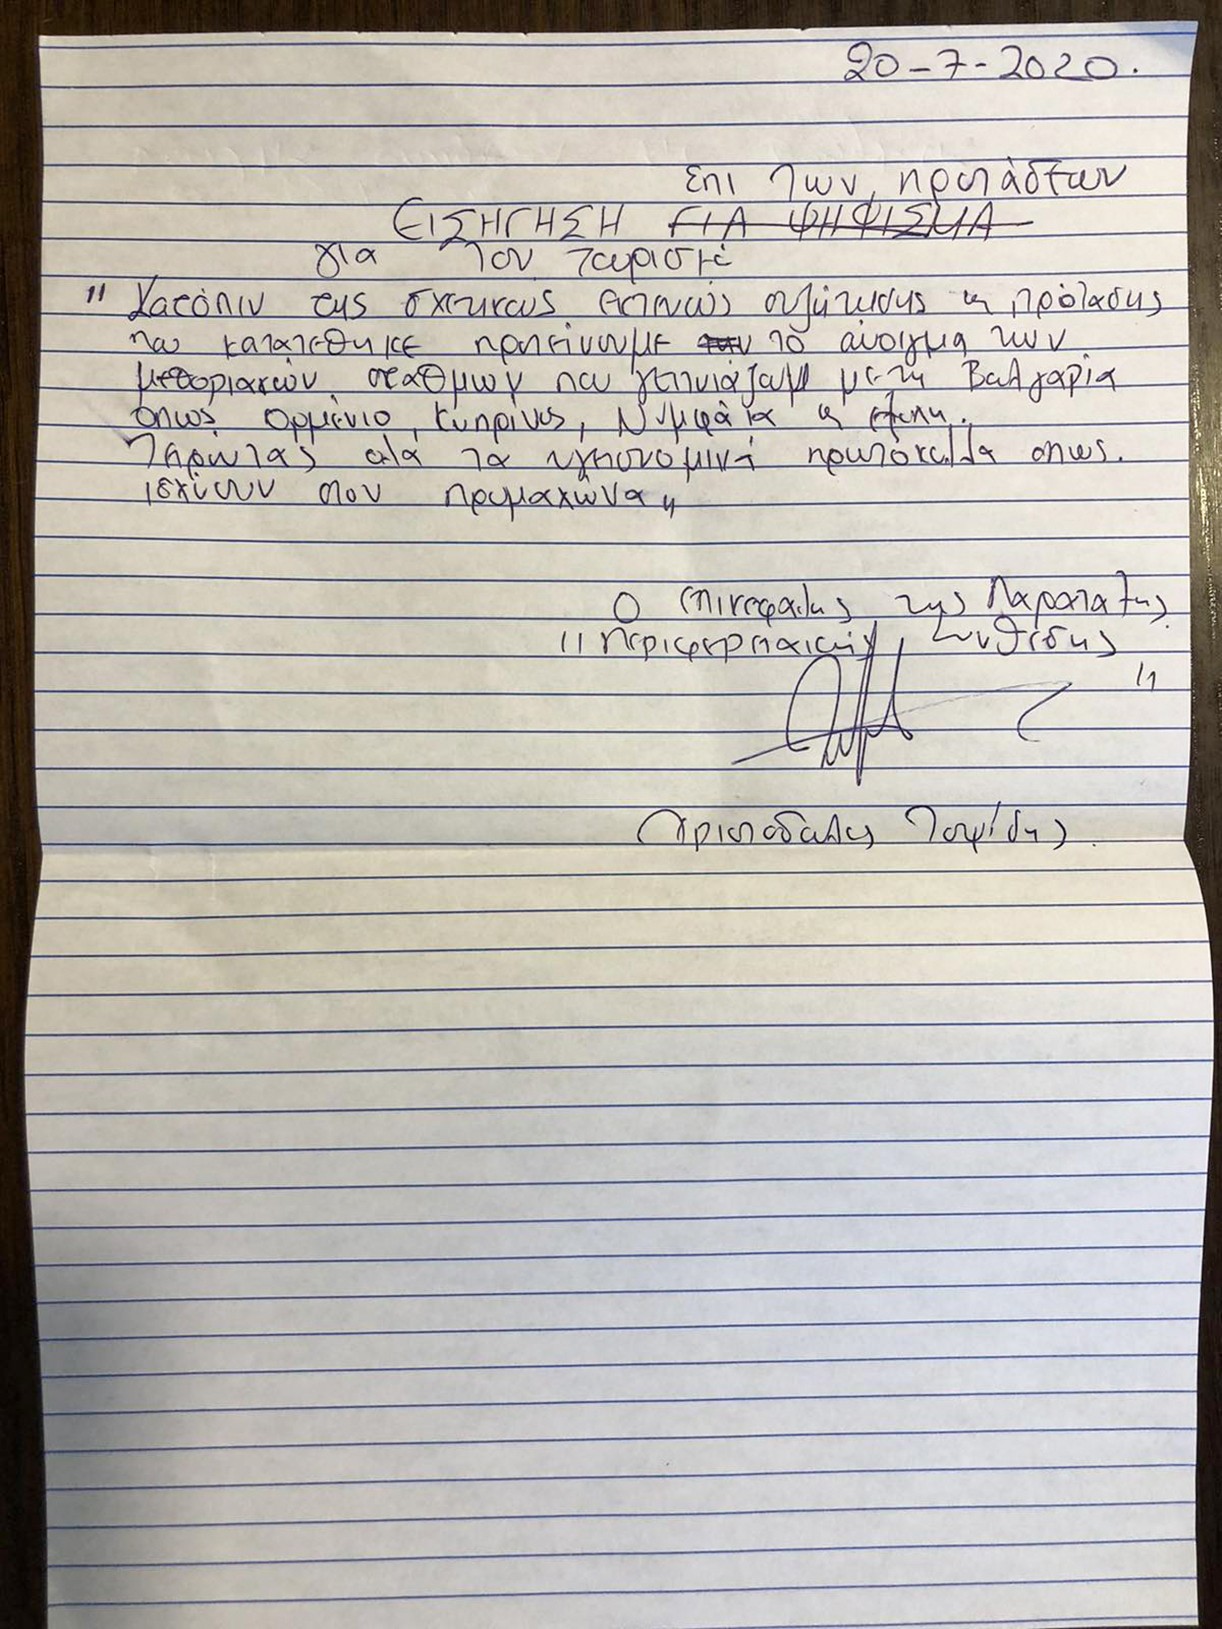 20-7-2020.
επι των προτάσεων
ΕΙΣΗΓΗΣΗ ΓΙΑ ΨΗΦΙΣΜΑ
για τον τουρισμό
"Κατόπιν της σχετικώς συζήτησης & πρότασης
που κατατέθηκε προτείνουμε το άνοιγμα των
μεθοριακών σταθμών που γειτνιάζουν με τη Βαλγαρία
όπως Ορμένιο, Κυπρίνος, Νυμφαία &
Τηρώντας όλα τα υγειονομικά πρωτόκολλα όπως.
ισχύουν στον προμαχώνα"
Ο επικεφαλής της Παράταξης
"Περιφερειακή Σύνθεσης
"
Χριστόδουλος Τοψίδης